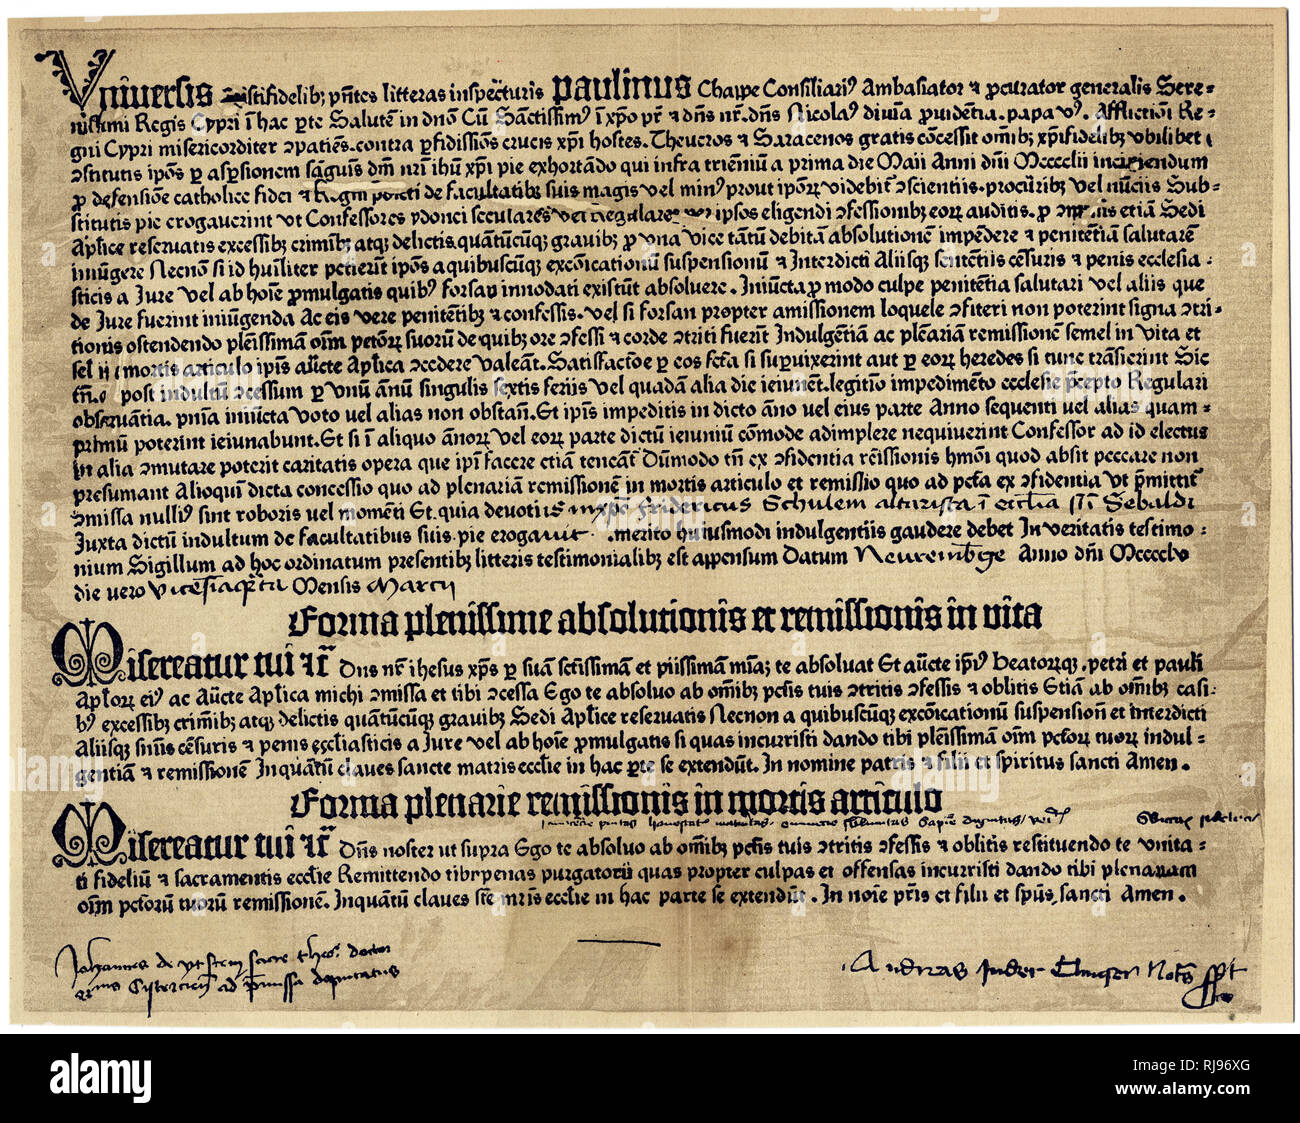 Vniuersis xpistifidelibꝫ pñtes litteras inspect̄uris paulinus Chappe Consiliariꝰ Ambasiator ⁊ ꝓcurator generalis Sere⸗
nissimi Regis Cypri ī hac ꝑte Salutē in dnō Cū Sāctissimꝰ ī xp̄o pr̄ ⁊ dn̄s nr̄. dn̄s Nicolaꝰ diuīa ꝓuidētia. papa vꝰ. Afflictiōi Re⸗
gni Cypri misericorditer ↄpatiēs. contra ꝑfidissiōs crucis xp̄i hostes. Theucros ⁊ Saracenos gratis cōcessit om̄ibꝫ xp̄ifidelibꝫ vbilibet
ↄstitutis ip̄os ꝑ aspersionem sāguis dn̄i nr̄i ihū xp̄i pie exhortādo qui infra trienniū a prima die Maii Anni dn̄i Mccccl̄ii incipiendum
ꝓ defensiōe catholice fidei ⁊ Regni p̄dicti de facultatibꝫ suis magis vel minꝰ prout ip̄oꝝ videbit̄ ↄscientiis. procur̄ibꝫ vel nūciis Sub⸗
stitutis pie erogauerint vt Confessores ydonei seculares vel Regulares ꝑ ipsos eligendi ↄfessionibꝫ eoꝝ auditis. ꝓ ↄmissis etiā Sedi
Apl̄ice reseruatis excessibꝫ crimībꝫ atqꝫ delictis quātūcūqꝫ grauibꝫ ꝓ vna vice tātū debitā absolutionē impēdere ⁊ penitētiā salutarē
iniūgere Necnō si id hūiliter petierīt ip̄os a quibuscūqꝫ excōicationū suspensionū ⁊ Interdicti Aliisqꝫ sentētiis cēsuris ⁊ penis ecclesia⸗
sticis a Jure vel ab hoīe ꝓmulgatis quibꝰ forsan innodati existūt absoluere. Iniūcta ꝓ modo culpe penitētia salutari vel aliis que
de Jure fuerint iniūgenda Ac eis vere penitētibꝫ ⁊ confessis. vel si forsan propter amissionem loquele ↄfiteri non poterint signa ↄtri⸗
tionis ostendendo plēissimā om̄ petōꝝ suorū de quibꝫ ore ↄfessi ⁊ corde ↄtriti fuerīt Indulgētiā ac plēariā remissionē semel in vita et
sel in mortis articulo ip̄is aucte Apl̄ica ↄcedere valeāt. Satisfactōe ꝑ eos fct̄a si supuixerint aut ꝑ eoꝝ heredes si tunc trāsierint Sic
tn̄. post indultū ↄcessum ꝑ vnū ānū singulis sextis feriis vel quadā alia die ieiunēt. legitīo impedimēto ecclesie p̄cepto Regulari
obseruantia. pnīa iniūcta voto uel alias non obstañ. Et ip̄is impeditis in dicto āno uel eius parte Anno sequenti uel alias quam⸗
primū poterint ieiunabunt. Et si ī aliquo ānoꝝ vel eoꝝ parte dictū ieiuniū cōmode adimplere nequiuerint Confessor ad id electus
in alia ↄmutare poterit caritatis opera que ip̄i facere etiā teneāt̄ Dūmodo tn̄ ex ↄfidentia rēissionis hm̄oi quod absit peccare non
presumant Alioqui dicta concessio quo ad plenariā remissionē in mortis articulo et remissio quo ad pct̄a ex ↄfidentia vt p̄mittit̄
ↄmissa nulliꝰ sint roboris uel momēti Et. quia deuoti us in xp̄o Fridericus Schulem altarista ī eccl̄ia sc̄i Sebaldi
Juxta dictū indultum de facultatibus suis. pie erogauit. merito huiusmodi indulgentiis gaudere debet In veritatis testimo⸗
nium Sigillum ad hoc ordinatum presentibꝫ litteris testimonialibꝫ est appensum Datum Neurembge Anno dn̄i Mcccclv
die uero vicesiaq̄rta Mensis Marcii
Forma plenissime absolutionis et remissionis in vita
Misereatur tui ⁊cͭ Dn̄s nr̄ ihesus xp̄s ꝑ suā sct̄issimā et piissimam mīaꝫ te absoluat Et aucte ip̄iꝰ beatoruqꝫ. petri et pauli
Aplōꝝ eiꝰ ac Aucte Apl̄ica michi ↄmissa et tibi ↄcessa Ego te absoluo ab om̄ibꝫ pct̄is tuis ↄtritis ↄfessis ⁊ oblitis Etiā ab om̄ibꝫ casi⸗
bꝰ excessibꝫ crimībꝫ atqꝫ delictis quātūcūqꝫ grauibꝫ Sedi Apl̄ice reseruatis Necnon a quibuscūqꝫ excōicationū suspensionū et interdicti
Aliisqꝫ sn̄īis cēsuris ⁊ penis eccl̄iasticis a Jure vel ab hoīe ꝓmulgatis si quas incurristi dando tibi plēissimā om̄ pctōꝝ tuoꝝ indul⸗
gentiā ⁊ remissionē Inquātū claues sancte matris eccl̄ie in hac ꝑte se extendūt. In nomine patris ⁊ filii et spiritus sancti Amen.
Forma plenarie remissionis in mortis articulo
Misereatur tui ⁊cͭ Dn̄s noster ut supra Ego te absoluo ab om̄ibꝫ pct̄is tuis ↄtritis ↄfessis ⁊ oblitis restituendo te vnita⸗
ti fideliū ⁊ sacramentis eccl̄ie Remittendo tibi penas purgatorii quas propter culpas et offensas incurristi dando tibi plenariam
om̄ pctorū tuorū remissionē. Inquātū claues sct̄e mr̄is eccl̄ie in hac parte se extendūt. In noīe pr̄is et filii et spūs sancti Amen.
Johannes de vtstem sacre theo. doctor
Cistercieñ ad p̄missa deputatus
Andreas
alamy
RJ96XG
www.alamy.com